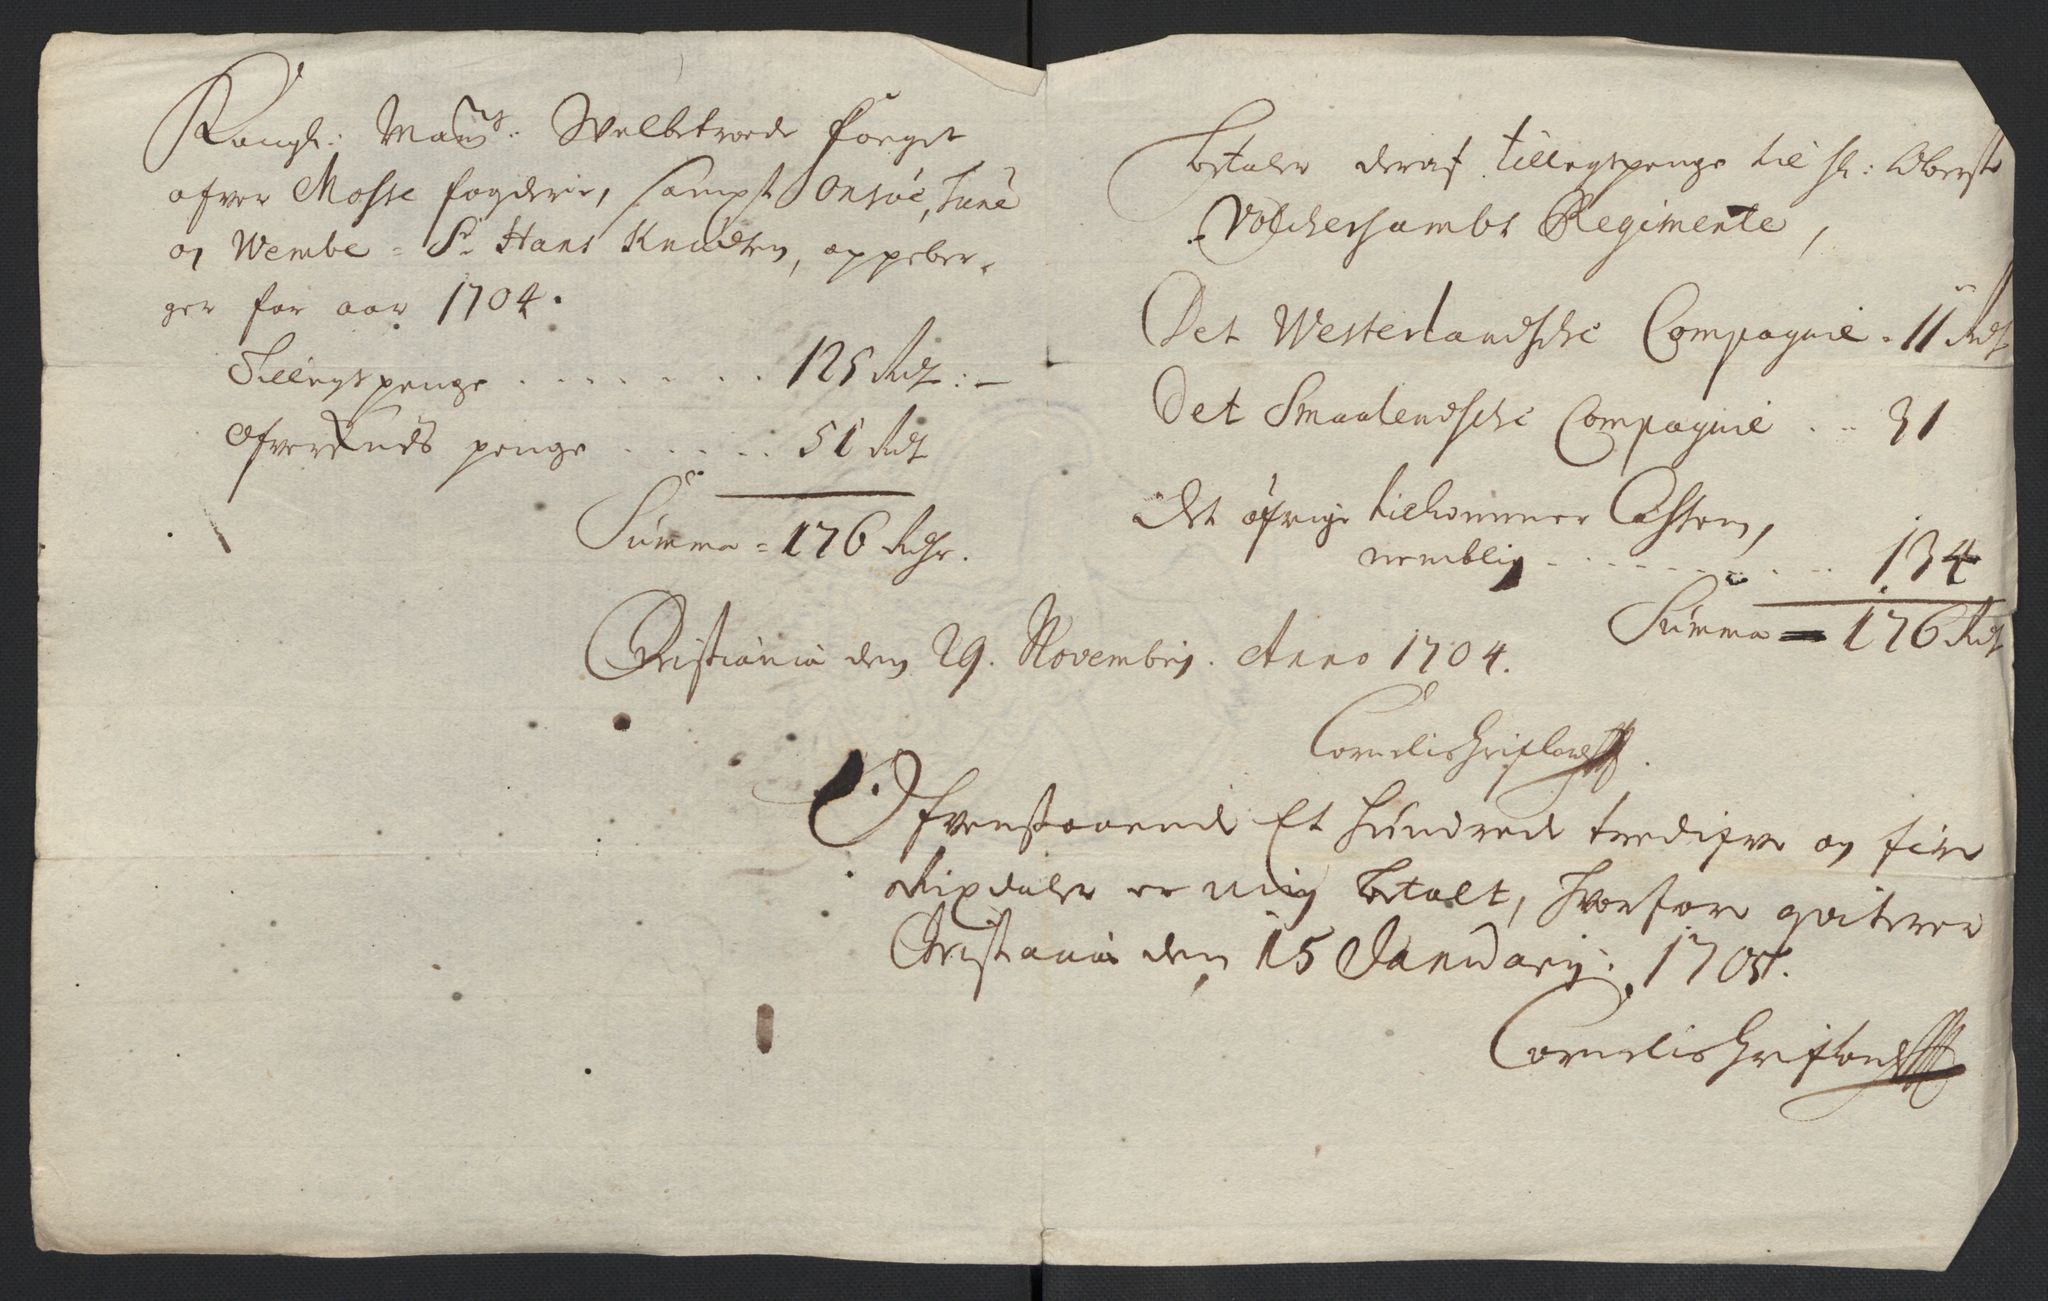 Kongl: Mays: Welbetroede foeget
ofver Mosse fogderie, sampt Onsøe, Tune
og Wembe = Sr Hans Knudsen, oppeber-
ger for aar 1704.
Tillegspenge . . . . . . . 125 Rdr: —
Ofver ends penge . . . . . . 51 Rdr
Summa = 176 Rdr.
betaler deraf tillegspenge til hr: Oberste
Volckersambs Regimente,
Det Westerlandsche Compagnie . 11 Rdr
Det Smaalendsche Compagnie . .. 31
Det øfrige tilkommer Cassen,
nemblig . . . . . . . . . . 134
Summa = 176 Rdr
Cristiania den 29. Novembrij. Anno 1704.
Cornelis Grifland
Ofvenstaaende Et hundrede tredifve og fire
Rixdaler er mig betalt, hvorfore qviterer
Cristiania den 15 Januarij: 1705.
Cornelis Grifland